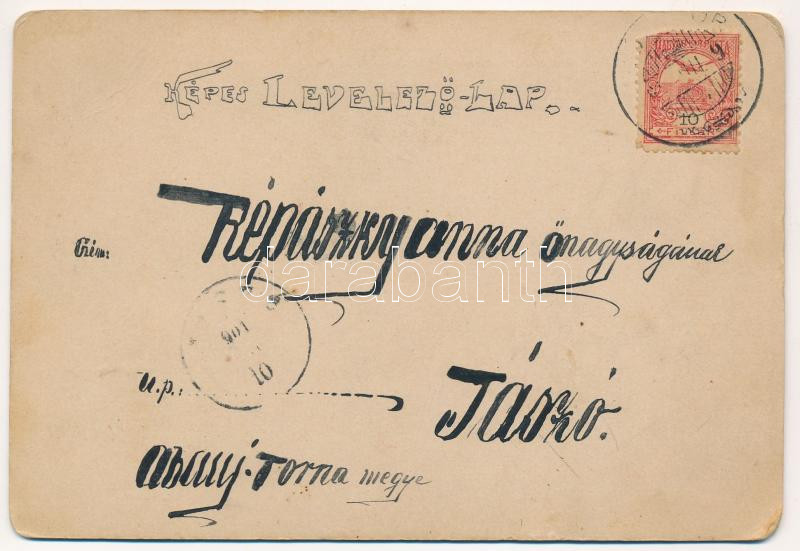 KÉPES LEVELEZŐ-LAP.
10
Répászky anna őnagyságának
Czím:
darabanth
901
10
u.p.:
Jászó.
abauj-Torna megye